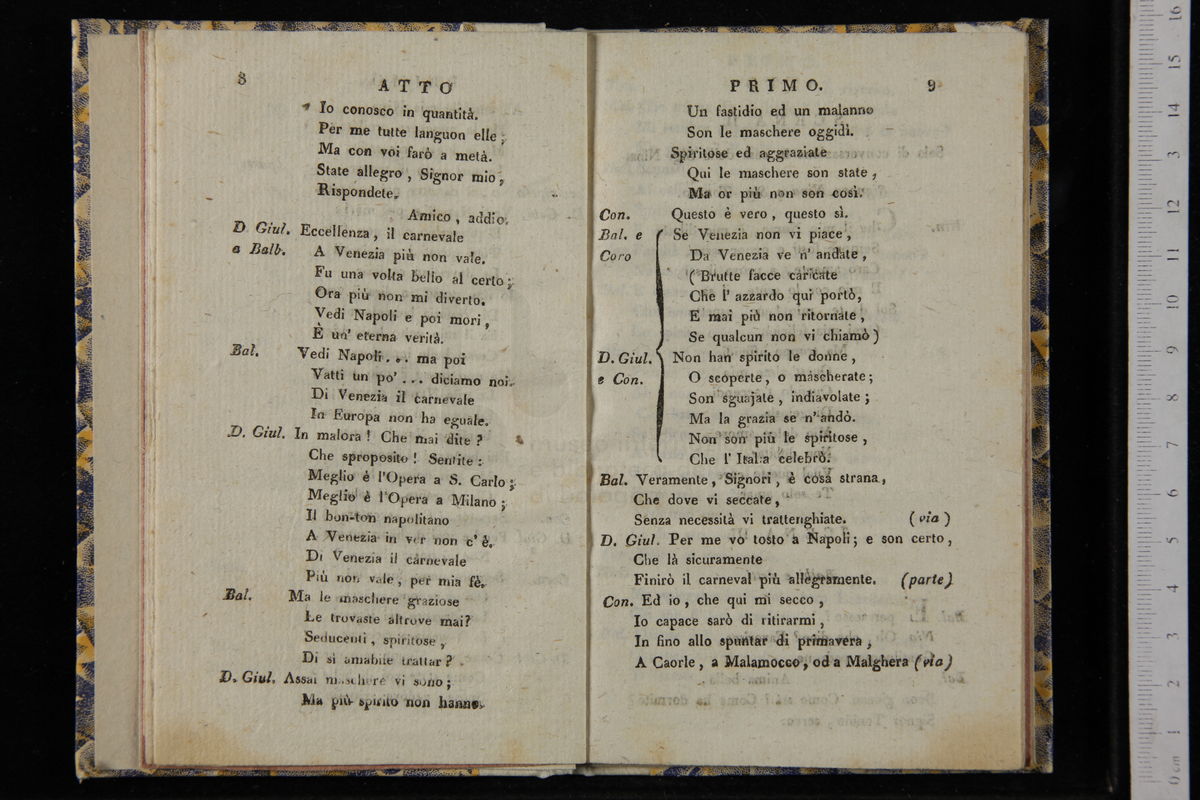 8
ATTO
Io conosco in quantità.
Per me tutte languon elle;
Ma con voi farò a metà.
State allegro, Signor mio,
Rispondete.
Amico, addio.
D. Giul. Eccellenza, il carnevale
a Balb. A Venezia più non vale.
Fu una volta bello al certo;
Ora più non mi diverto.
Vedi Napoli e poi mori,
È un' eterna verità.
Bal. Vedi Napoli... ma poi
Vatti un po'... diciamo noi.
Di Venezia il carnevale
In Europa non ha eguale.
D. Giul. In malora! Che mai dite?
Che sproposito! Sentite:
Meglio è l'Opera a S. Carlo;
Meglio è l'Opera a Milano;
Il bon-ton napolitano
A Venezia in ver non c'è.
Di Venezia il carnevale
Più non vale, per mia fè.
Bal. Ma le maschere graziose
Le trovaste altrove mai?
Seducenti, spiritose,
Di sì amabile trattar?
D. Giul. Assai maschere vi sono;
Ma più spirito non hanno.
PRIMO.
9
Un fastidio ed un malanno
Son le maschere oggidì.
Spiritose ed aggraziate
Qui le maschere son state,
Ma or più non son così.
Con. Questo è vero, questo sì.
Bal. e Se Venezia non vi piace,
Coro Da Venezia ve n' andate,
(Brutte facce caricate
Che l' azzardo qui portò,
E mai più non ritornate,
Se qualcun non vi chiamò)
D. Giul. Non han spirito le donne,
e Con. O scoperte, o mascherate;
Son sguajate, indiavolate;
Ma la grazia se n' andò.
Non son più le spiritose,
Che l' Italia celebrò.
Bal. Veramente, Signori, è cosa strana,
Che dove vi seccate,
Senza necessità vi trattenghiate. (via)
D. Giul. Per me vo' tosto a Napoli; e son certo,
Che là sicuramente
Finirò il carneval più allegramente. (parte)
Con. Ed io, che qui mi secco,
Io capace sarò di ritirarmi,
In fino allo spuntar di primavera,
A Caorle, a Malamocco, od a Malghera (via)
0 cm 1 2 3 4 5 6 7 8 9 10 11 12 13 14 15 16